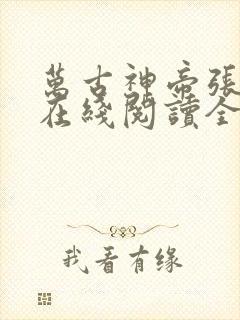 萬古神帝張
在綫閱讀全
我看有缘